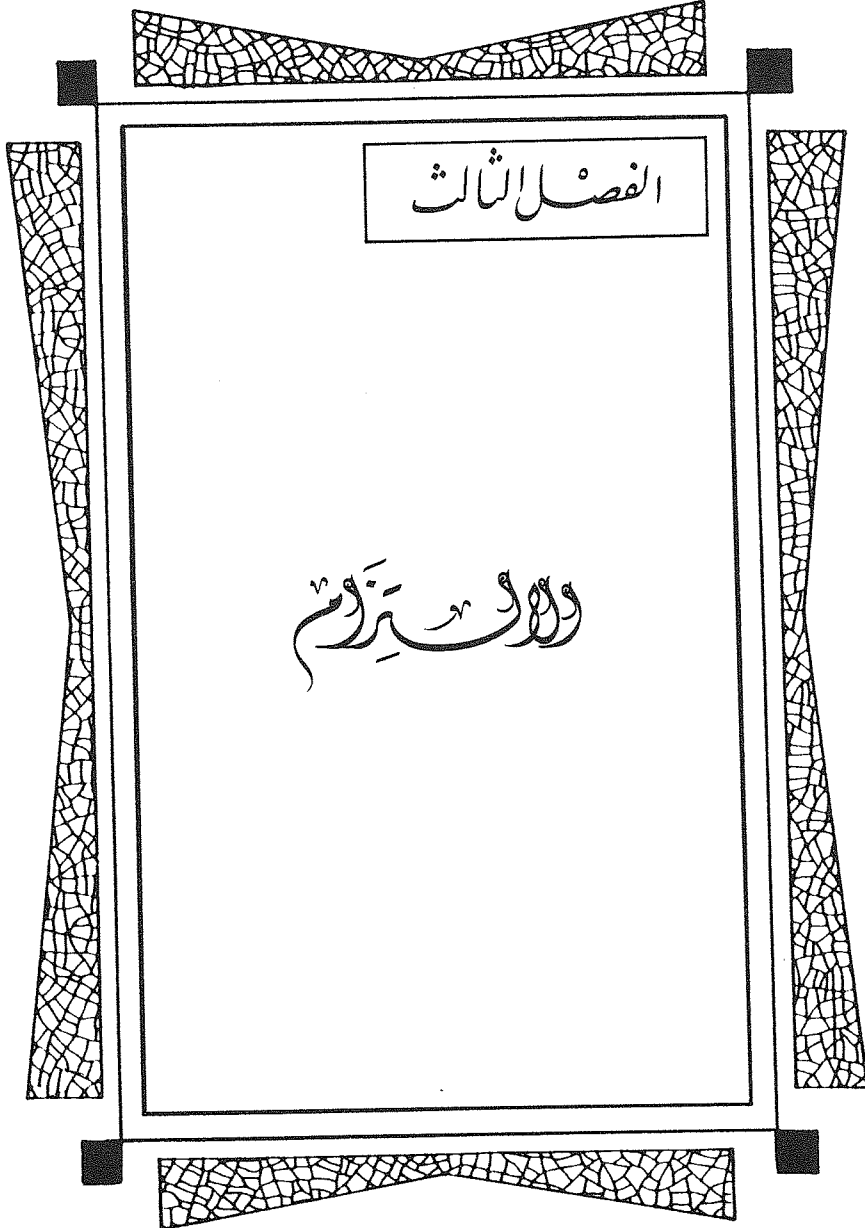 الفصْل الثالث
الالتِزَام